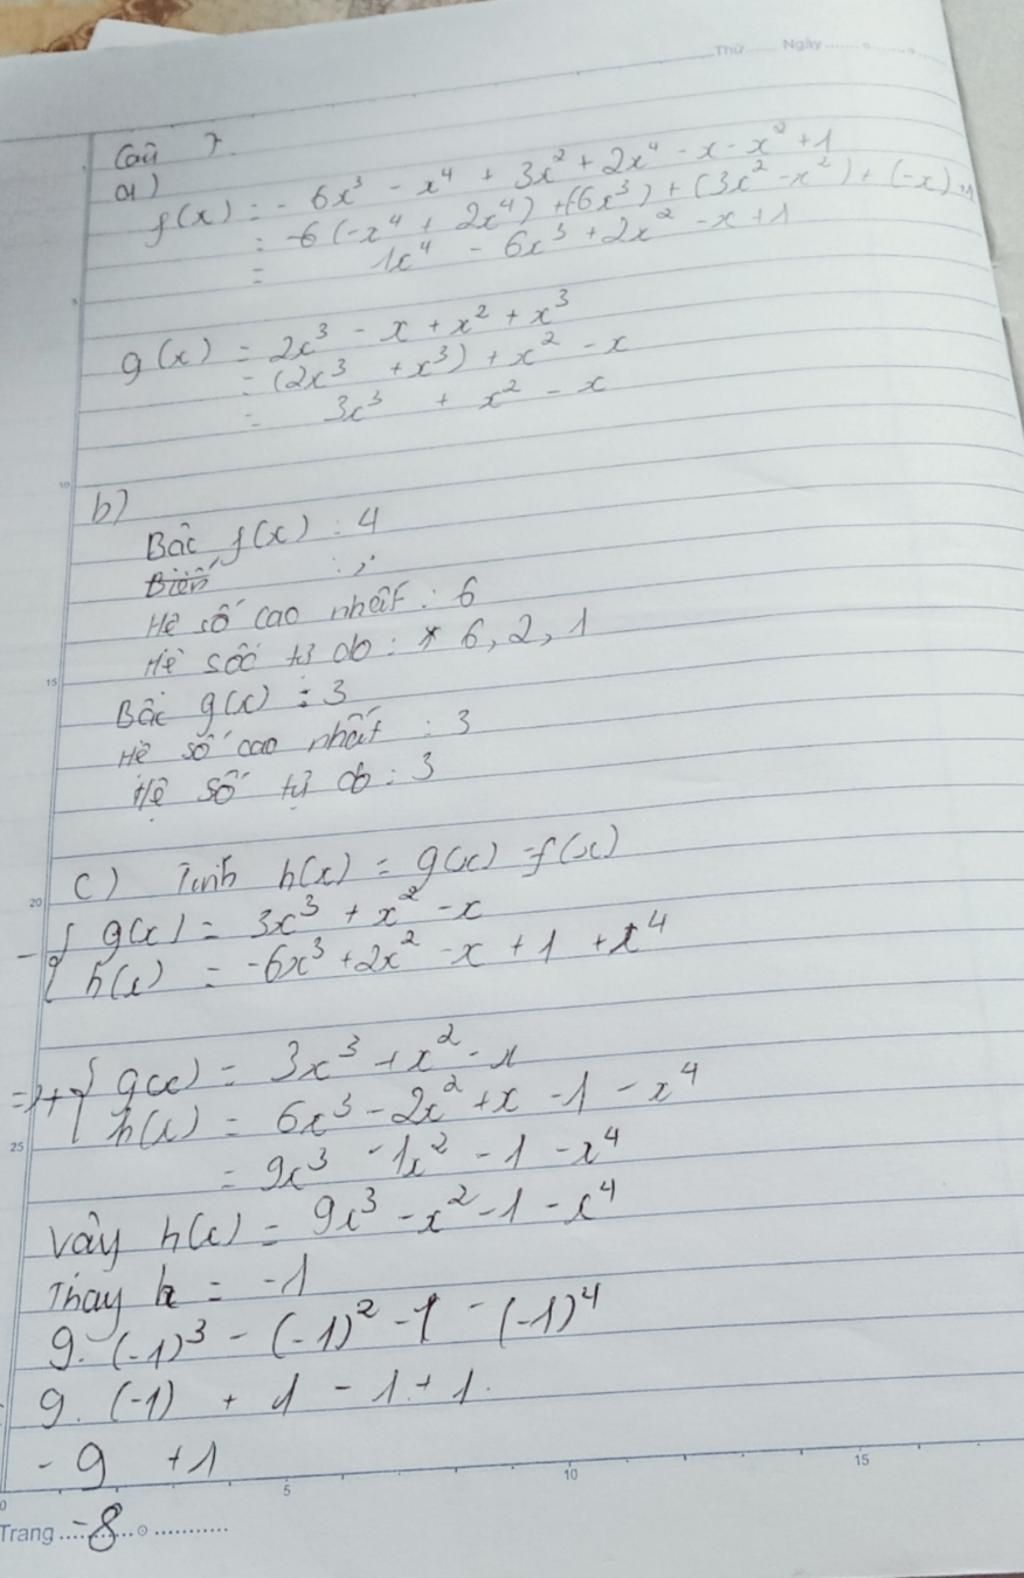 Thứ Ngày
Câu 7.
a)
f(x) = - 6x³ - x⁴ + 3x² + 2x⁴ - x - x² + 1
= -6(-x⁴ + 2x⁴) + (6x³) + (3x² - x²) + (-x) + 1
= 1x⁴ - 6x³ + 2x² - x + 1
g(x) = 2x³ - x + x² + x³
= (2x³ + x³) + x² - x
= 3x³ + x² - x
b)
Bậc f(x) : 4
Biến : ;
Hệ số cao nhất : 6
Hệ số tự do : 6, 2, 1
Bậc g(x) : 3
Hệ số cao nhất : 3
Hệ số tự do : 3
c) Tính h(x) = g(x) - f(x)
- { g(x) = 3x³ + x² - x
h(x) = -6x³ + 2x² - x + 1 + x⁴
=> + { g(x) = 3x³ + x² - x
h(x) = 6x³ - 2x² + x - 1 - x⁴
= 9x³ - 1x² - 1 - x⁴
Vậy h(x) = 9x³ - x² - 1 - x⁴
Thay x = -1
9. (-1)³ - (-1)² - 1 - (-1)⁴
9. (-1) + 1 - 1 + 1.
- 9 + 1
-8
Trang
5 10 15 20 25
0 5 10 15